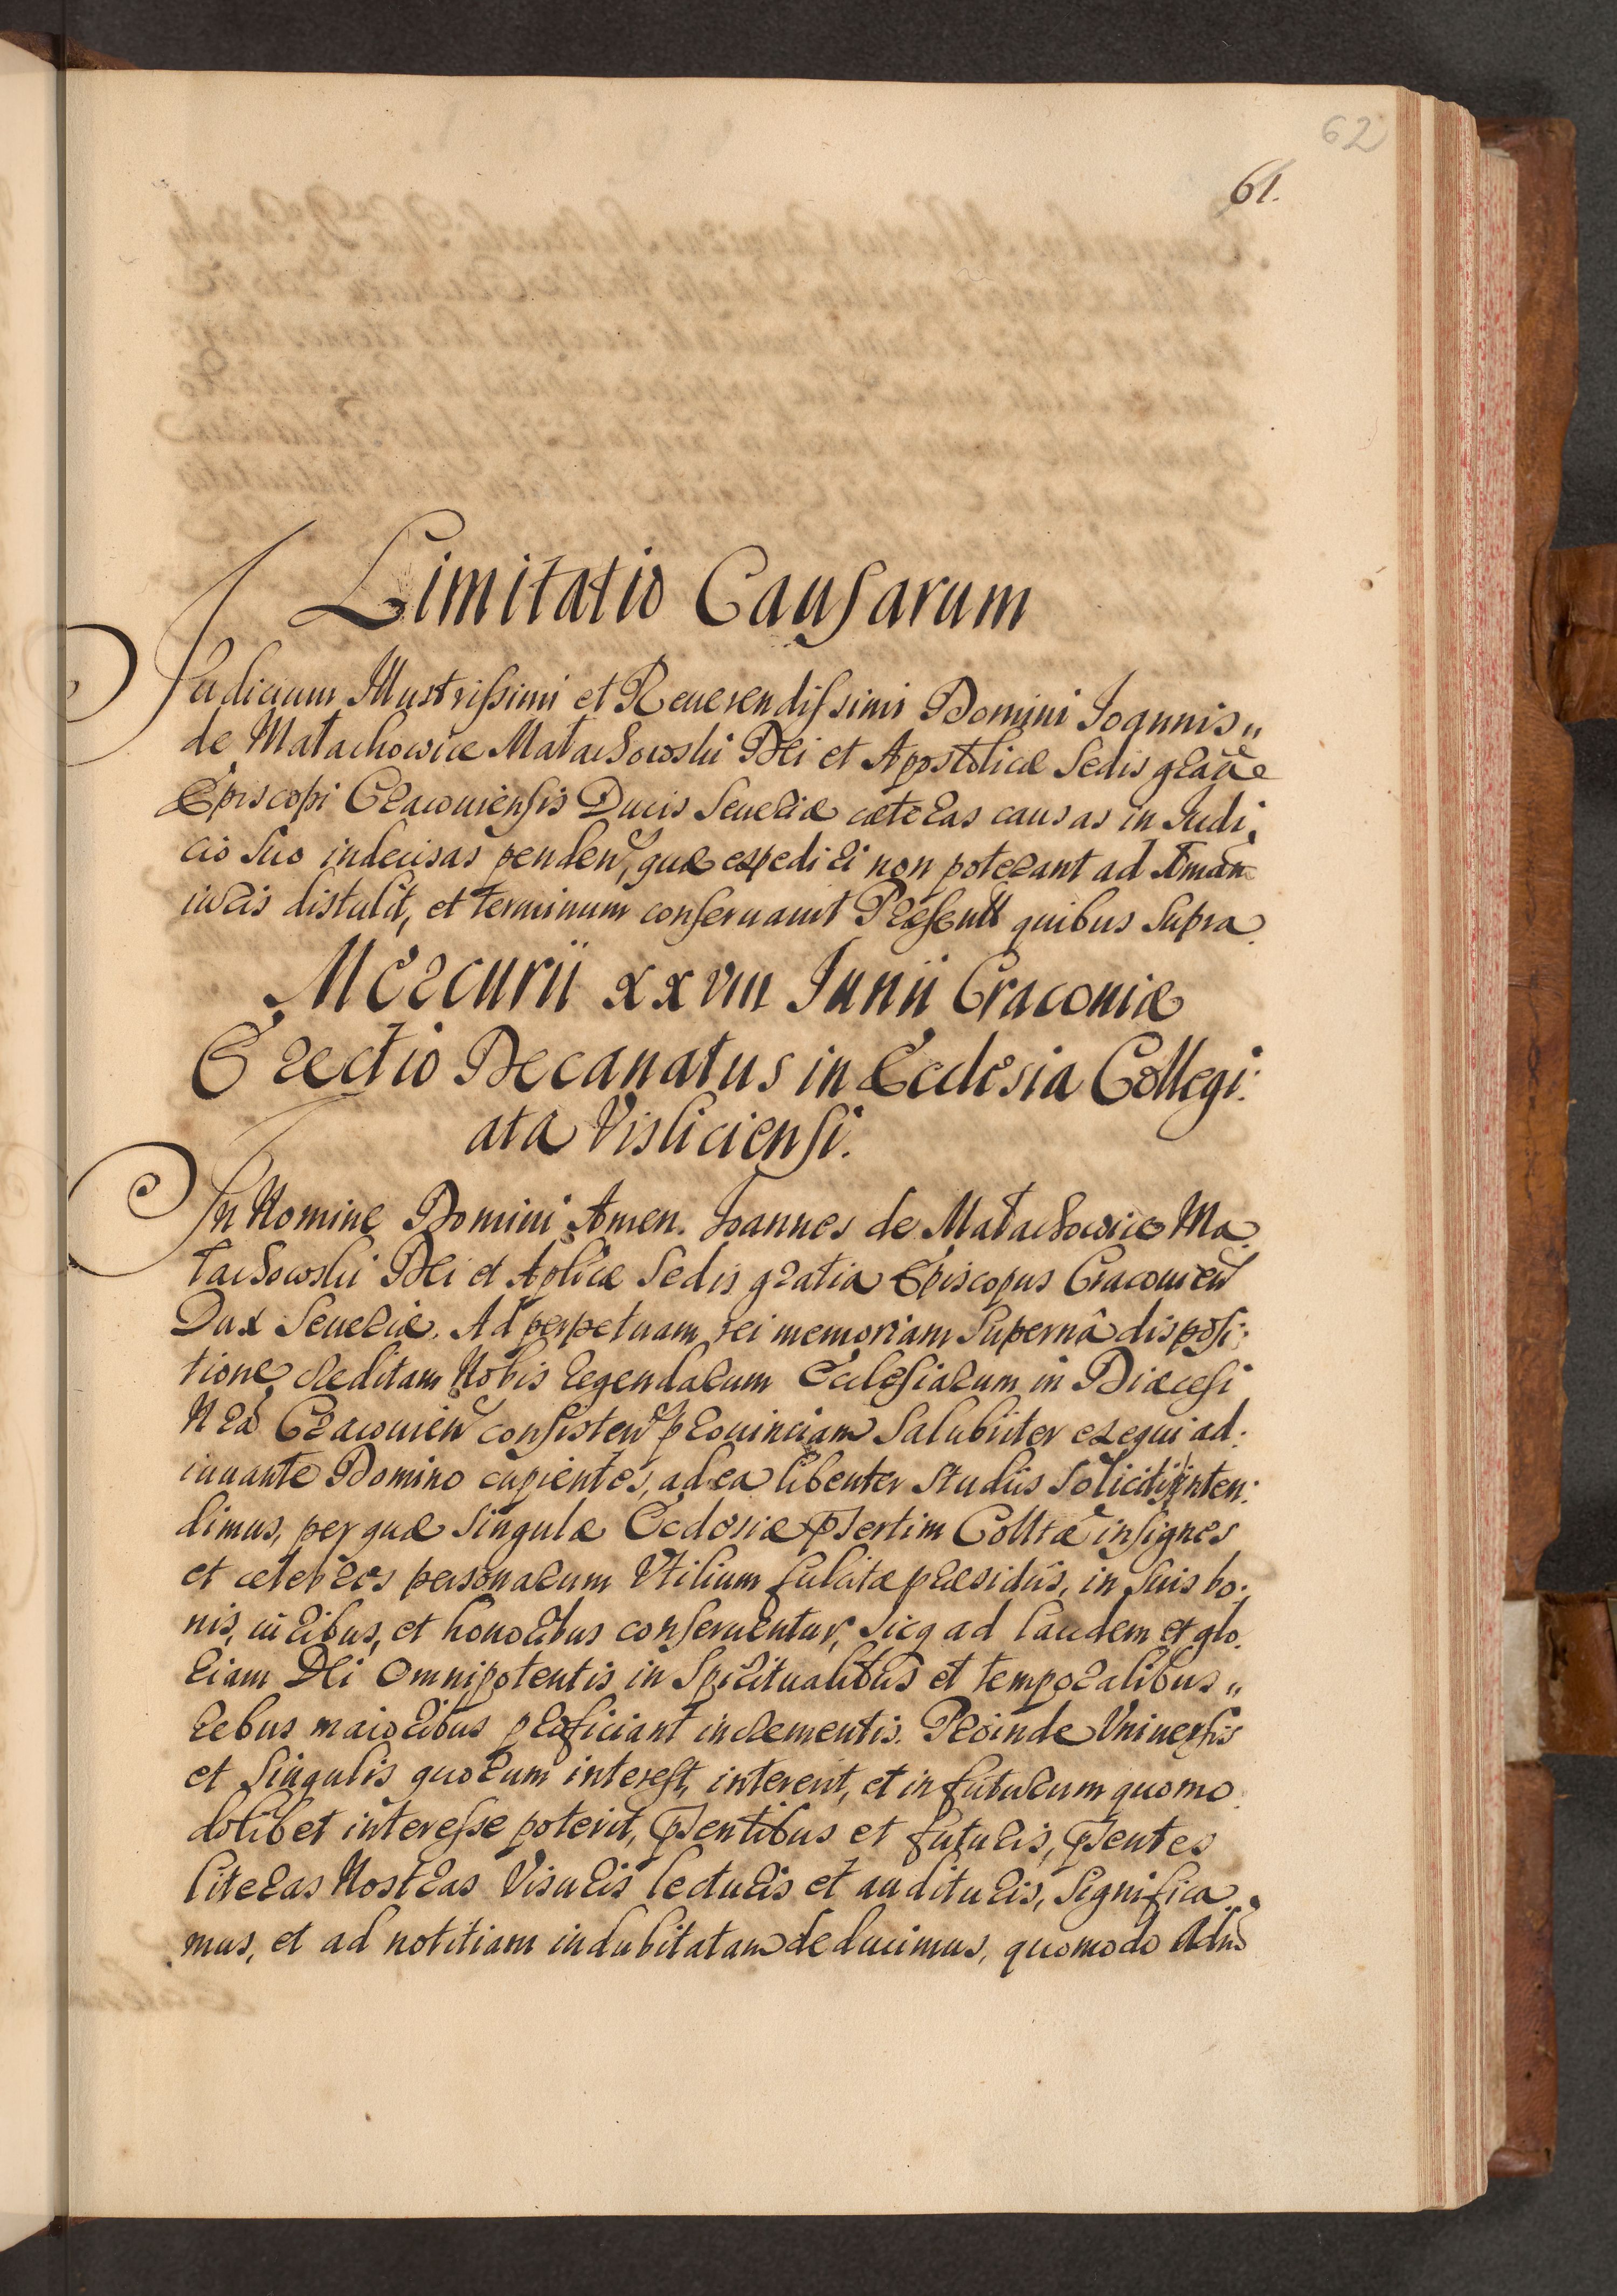 62
61.
Limitatio Causarum
Iudicium Illustrissimi et Reuerendissimi Domini Ioannis„
de Małachowice Małachowski Dei et Apostolicæ Sedis gratiæ
Episcopi Cracouiensis Ducis Seueriæ cæteras causas in Iudi,
cio suo indecisas penden, quæ expediri non poterant ad
iuris distulit, et terminum conseruauit Præsentt quibus supra.
Mercurii xxviii Junii Cracouiæ
Erectio Decanatus in Ecclesia Collegi:
ata Visliciensi.
In Nomine Domini Amen. Ioannes de Małachowice Ma
łachowski Dei et Aplicæ Sedis gratia Episcopus Cracouien
Dux Seueriæ. Ad perpetuam rei memoriam Supernâ disposi:
tione creditam Nobis regendarum Ecclesiarum in Diæcesi
Nra Cracouien consisten prouinciam salubriter exequi ad:
iuuante Domino cupientes, ad ea libenter studiis solicitis inten:
dimus, per quæ singulæ Ecclesiæ psertim Colltæ insignes
et celebres personarum Vtilium fulcitæ præsidiis, in suis bo:
nis, iuribus, et honoribus conseruentur, sicq ad laudem et glo.
riam Dei Omnipotentis in Spiritualibus et temporalibus„
rebus maioribus proficiant incrementis. Proinde Vniuersis
et singulis quorum interest, intererit, et in futurum quomo
dolibet interesse poterit, psentibus et futuris, psentes
literas Nostras Visuris lecturis et audituris, significa.
mus, et ad notitiam indubitatam deducimus, quomodo